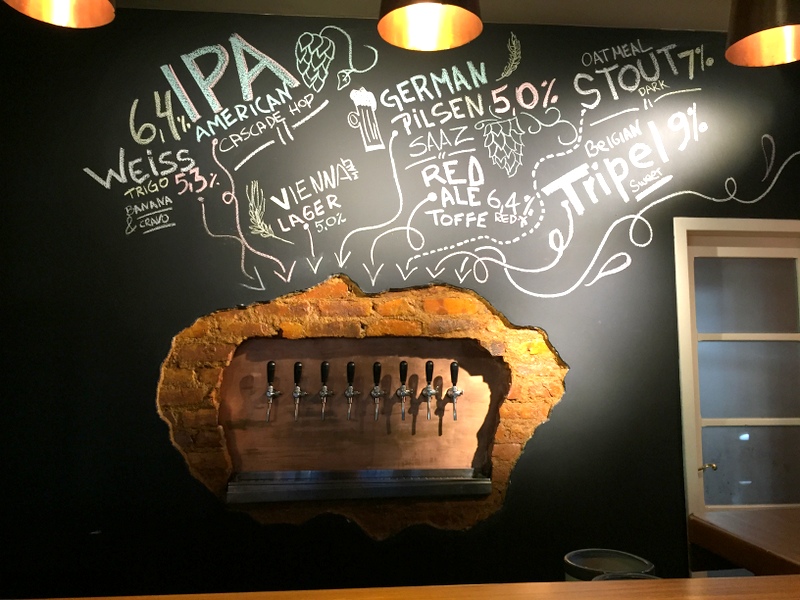 IPA
6,4%
AMERICAN
CASCADE HOP
WEISS
TRIGO 5,3%
BANANA
& CRAVO
VIENNA
LAGER
5,0%
GERMAN
PILSEN 5,0%
SAAZ
RED
ALE 6,4%
TOFFE RED
OATMEAL
STOUT 7%
DARK
BELGIAN
Tripel 9%
SWEET